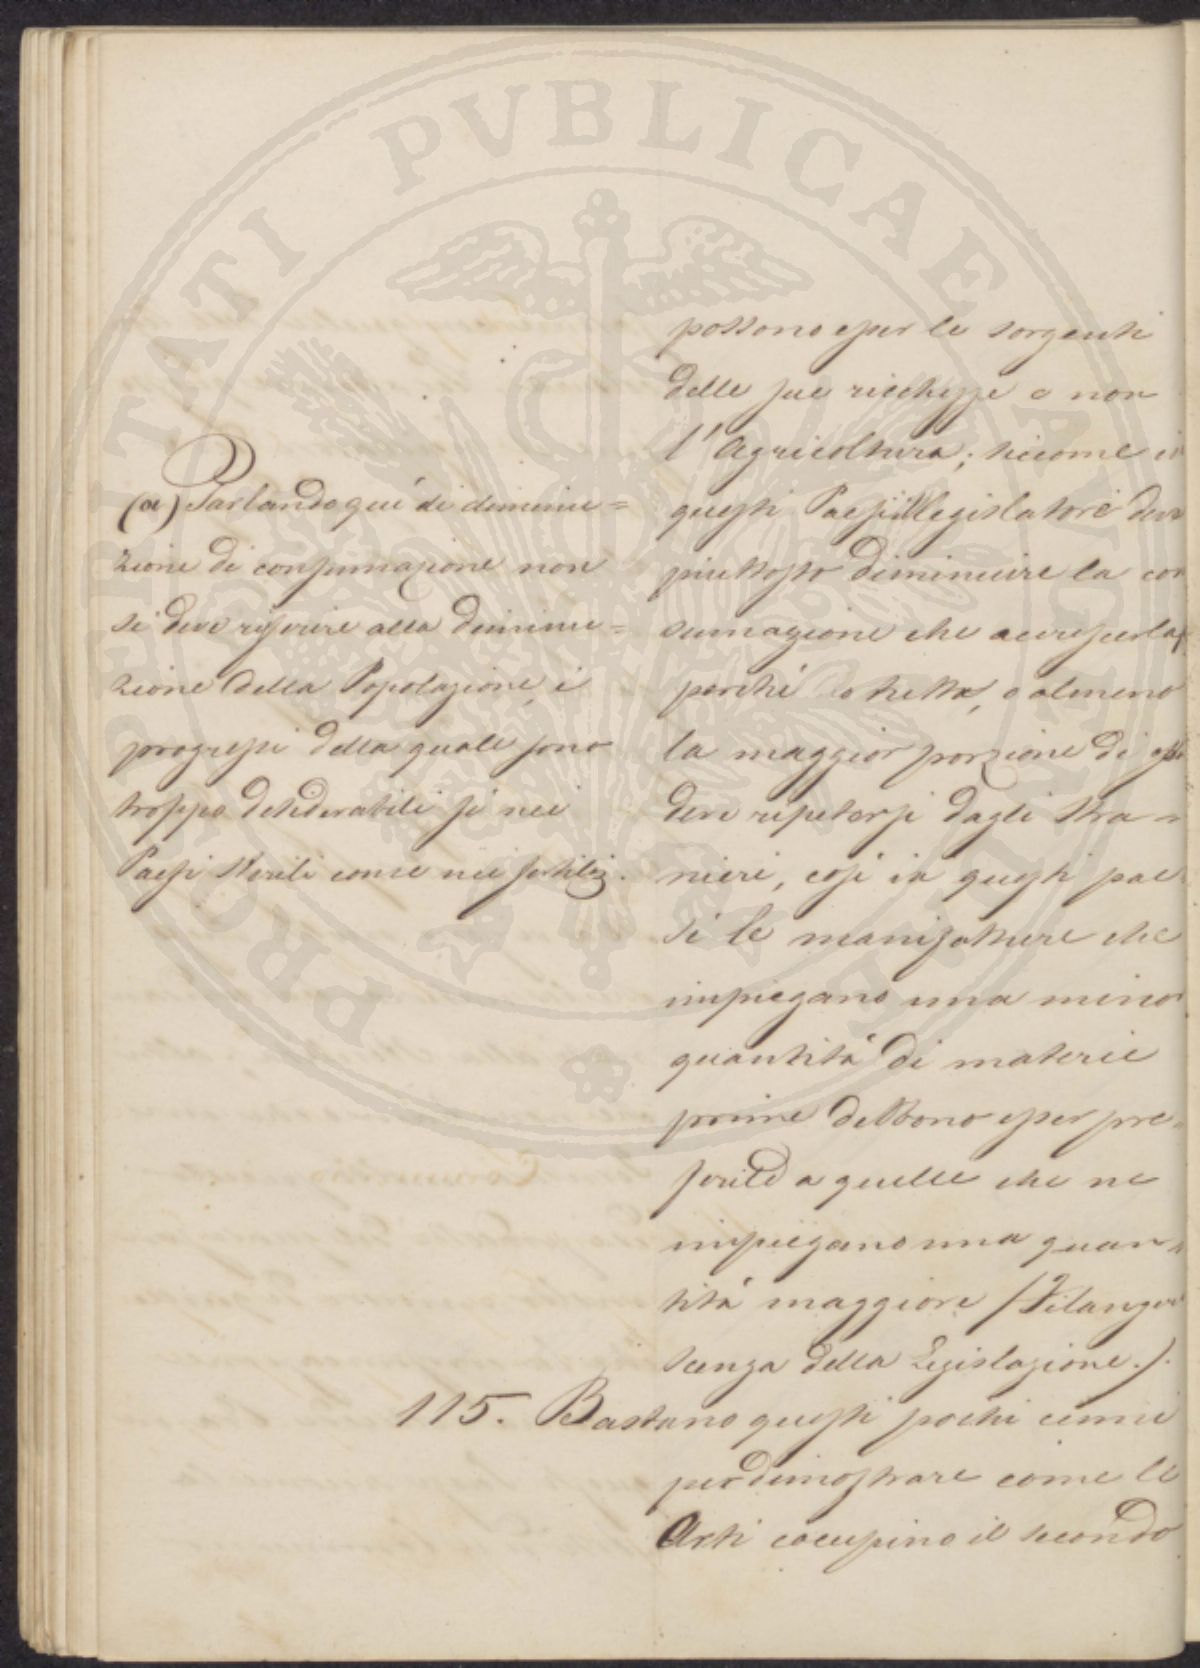 possono esser le sorgenti
delle sue ricchezze e non
l'Agricoltura; siccome in
questi Paesi il Legislatore deve
piuttosto diminuire la con
sumazione che accrescerla,
perchè tutta, o almeno
la maggior porzione di essa
deve ripetersi dagli stra=
nieri, così in questi pae
si le manifatture che
impiegano una minor
quantità di materie
prime debbono esser pre=
ferite a quelle che ne
impiegano una quan=
tità maggiore /Filangeri
Scenza della Legislazione./.
115. Bastano questi pochi cenni
per dimostrare come le
Arti occupino il secondo
(a) Parlando quì di diminu=
zione di consumazione non
si deve riferire alla diminu=
zione della Popolazione, i
progressi della quale sono
troppo desiderabili sì nei
Paesi sterili come nei fertili.
PROSPERITATI PVBLICAE AVGENDAE